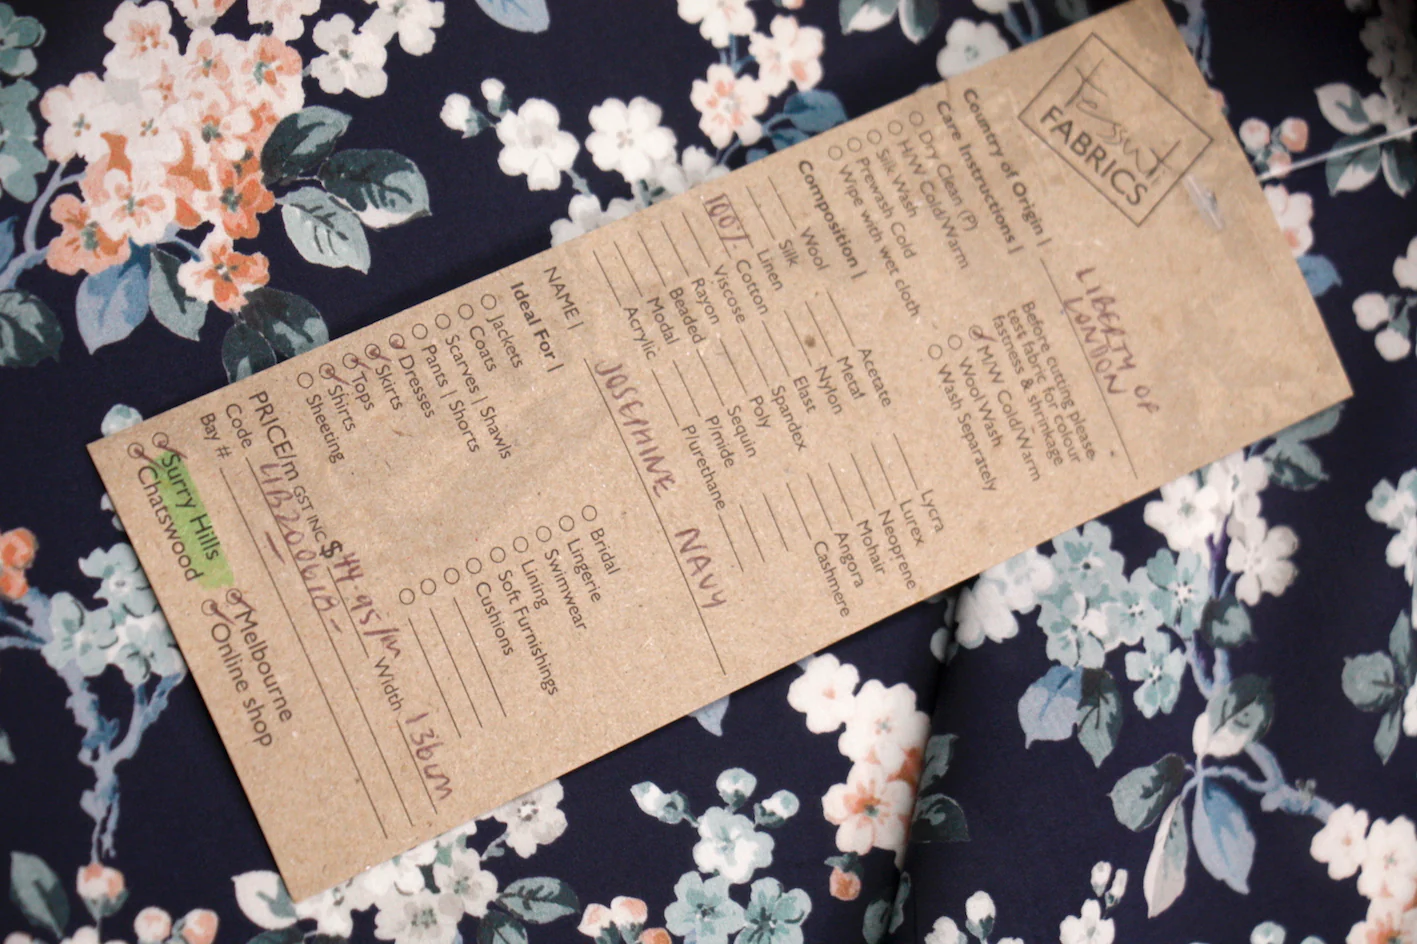 tessuti
FABRICS
Country of Origin | LIBERTY OF
LONDON
Care Instructions |
Dry Clean (P)
H/W Cold/Warm
Silk Wash
Prewash Cold
Wipe with wet cloth
Before cutting please
test fabric for colour
fastness & shrinkage
M/W Cold/Warm
Wool Wash
Wash Separately
Composition |
Wool
Silk
Linen
100% Cotton
Viscose
Rayon
Beaded
Modal
Acrylic
Acetate
Metal
Nylon
Elast
Spandex
Poly
Sequin
P/mide
P/urethane
Lycra
Lurex
Neoprene
Mohair
Angora
Cashmere
NAME | JOSEPHINE NAVY
Ideal For |
Jackets
Coats
Scarves | Shawls
Pants | Shorts
Dresses
Skirts
Tops
Shirts
Sheeting
Bridal
Lingerie
Swimwear
Lining
Soft Furnishings
Cushions
PRICE/m GST INC $ 44.95/m Width 136cm
Code LIB200618-
Bay #
Surry Hills
Melbourne
Chatswood
Online shop